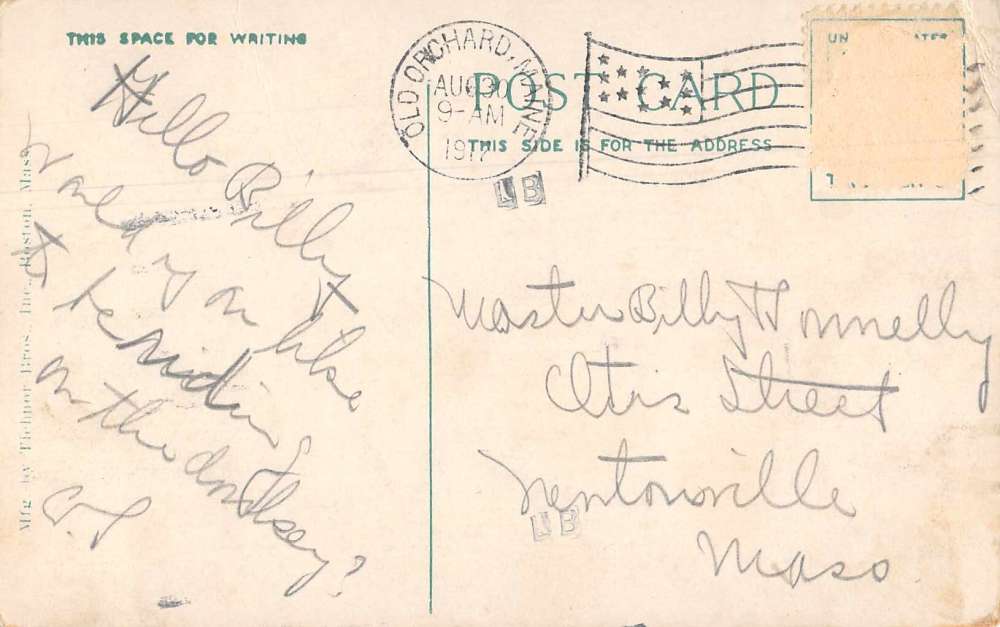 THIS SPACE FOR WRITING
Hello Billy
Would you like
to be riding
on the donkey?
Mfg by Tichnor Bros. Inc., Boston, Mass.
OLD ORCHARD, MAINE
AUG 30
9-AM
1917
POST CARD
THIS SIDE IS FOR THE ADDRESS
LB
Master Billy
Otis Street
Newtonville
Mass.
LB